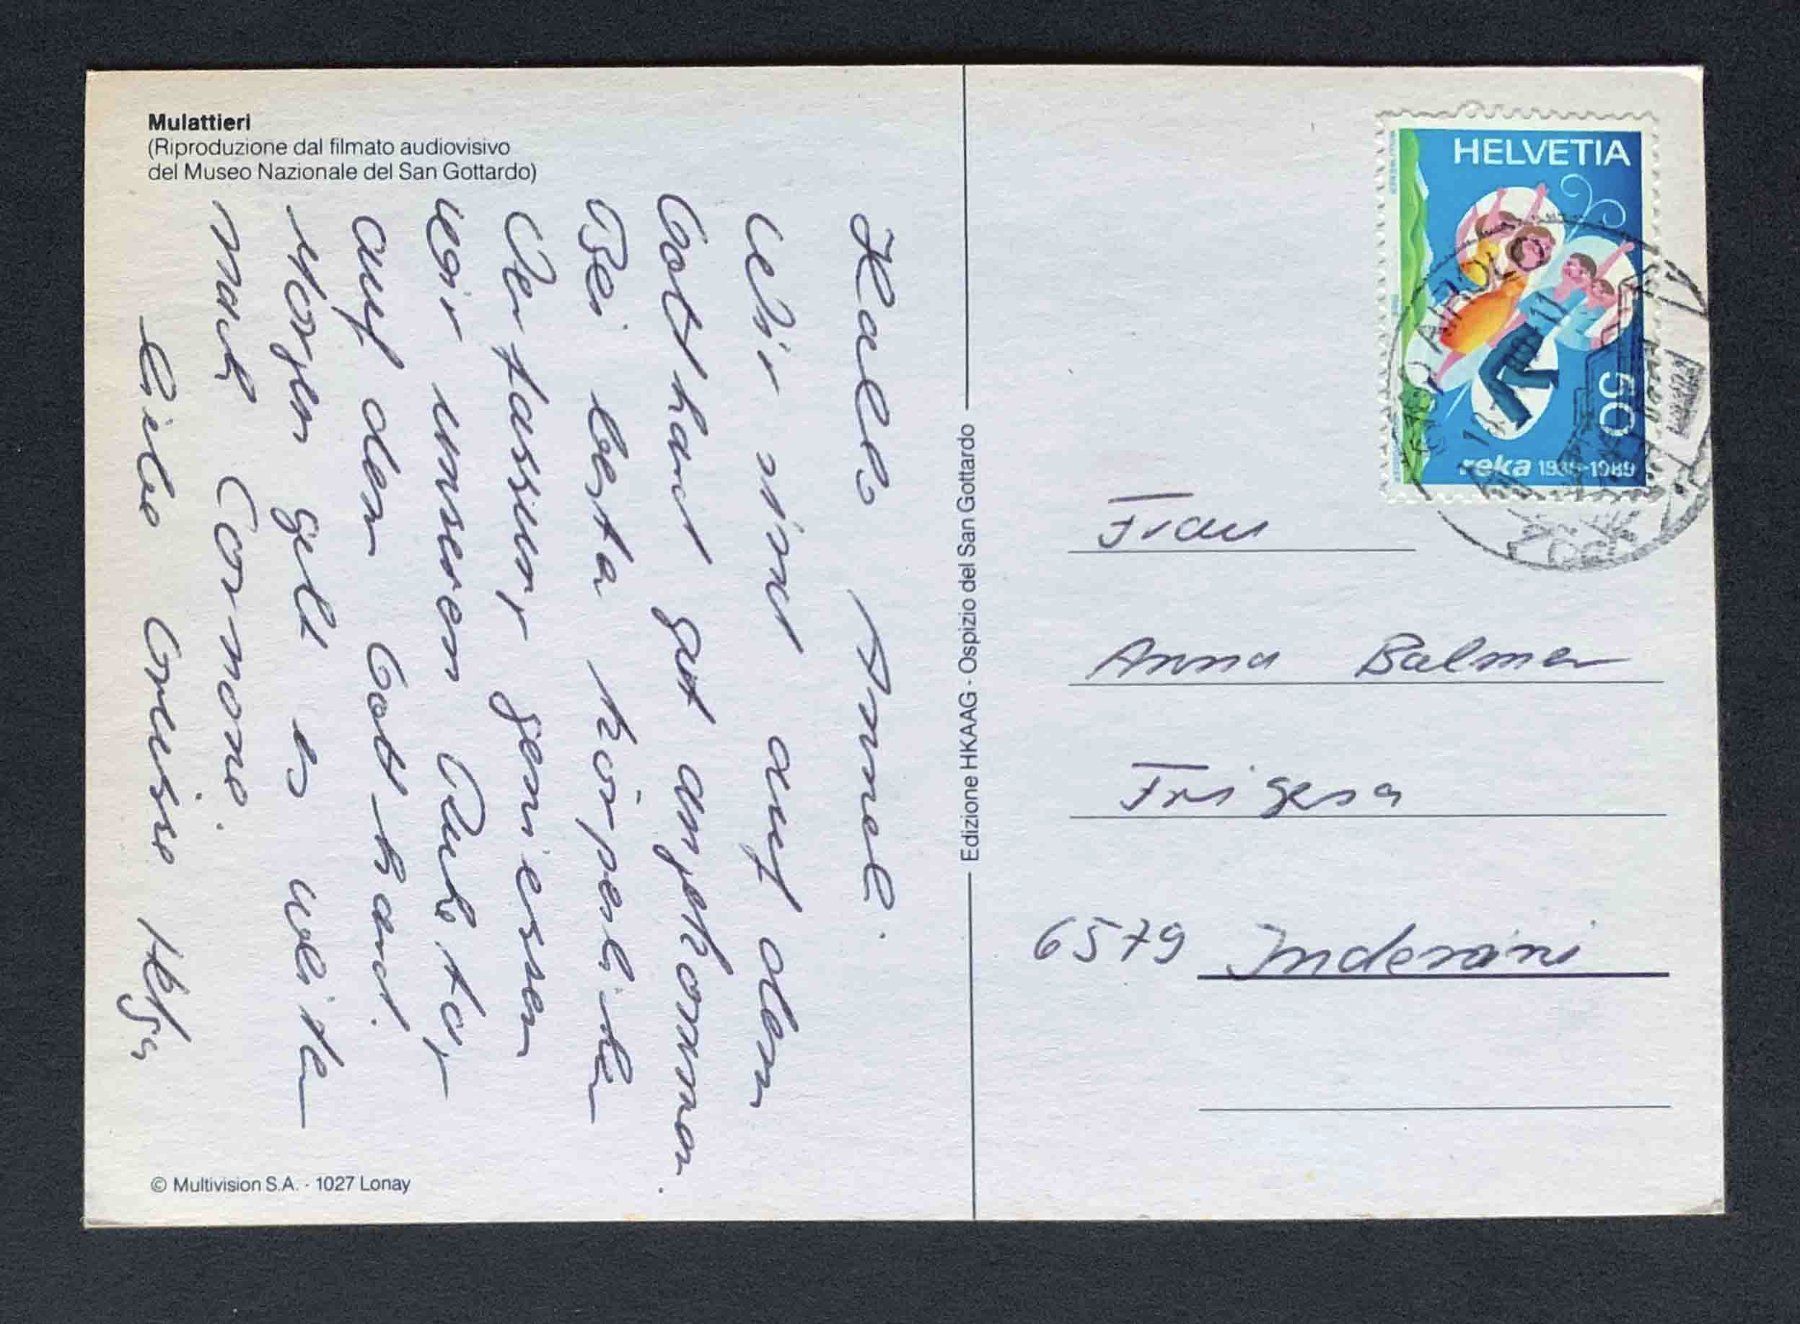 Mulattieri
(Riproduzione dal filmato audiovisivo
del Museo Nazionale del San Gottardo)
Hallo Anneli.
Wir sind auf dem
Gotthard gut angekommen.
Bei besta körperliche
Verfassung geniessen
wir unseren Ruhetag
auf dem Gotthard.
Morgen geht es weiter
nach
Liebe Grüsse
© Multivision S.A. - 1027 Lonay
Edizione HKAAG - Ospizio del San Gottardo
HELVETIA
50
reka 1939-1989
AIROLO
Frau
Anna Balmer
Frigesa
6579 Indemini